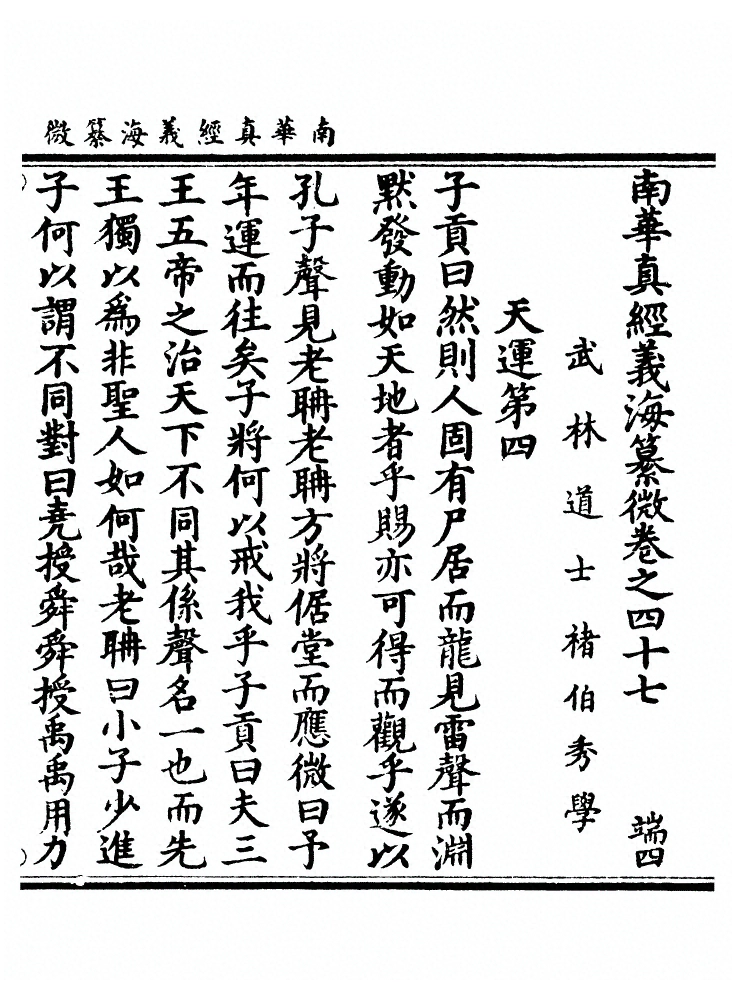 南華真經義海纂微
南華真經義海纂微卷之四十七 端四
武林道士褚伯秀學
天運第四
子貢曰然則人固有尸居而龍見雷聲而淵
默發動如天地者乎賜亦可得而觀乎遂以
孔子聲見老聃老聃方將倨堂而應微曰予
年運而往矣子將何以戒我乎子貢曰夫三
王五帝之治天下不同其係聲名一也而先
王獨以為非聖人如何哉老聃曰小子少進
子何以謂不同對曰堯授舜舜授禹禹用力